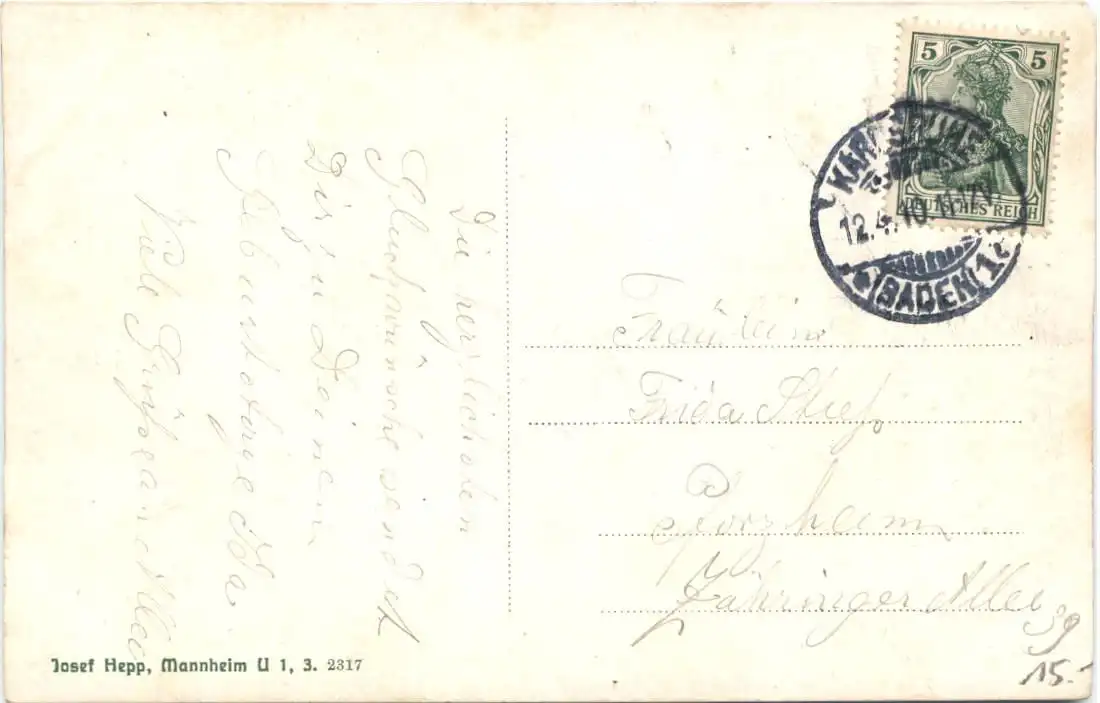 Die herzlichsten
Glückwünsche sendet
Dir zu Deinem
Geburtstage Ida.
Viele Grüße an Alle
5 5
DEUTSCHES REICH
KARLSRUHE
12.4.10 11-12V.
(BADEN) 1
Fräulein
Frida
Pforzheim
Zähringer Allee
39
15.-
Josef Hepp, Mannheim U 1, 3. 2317